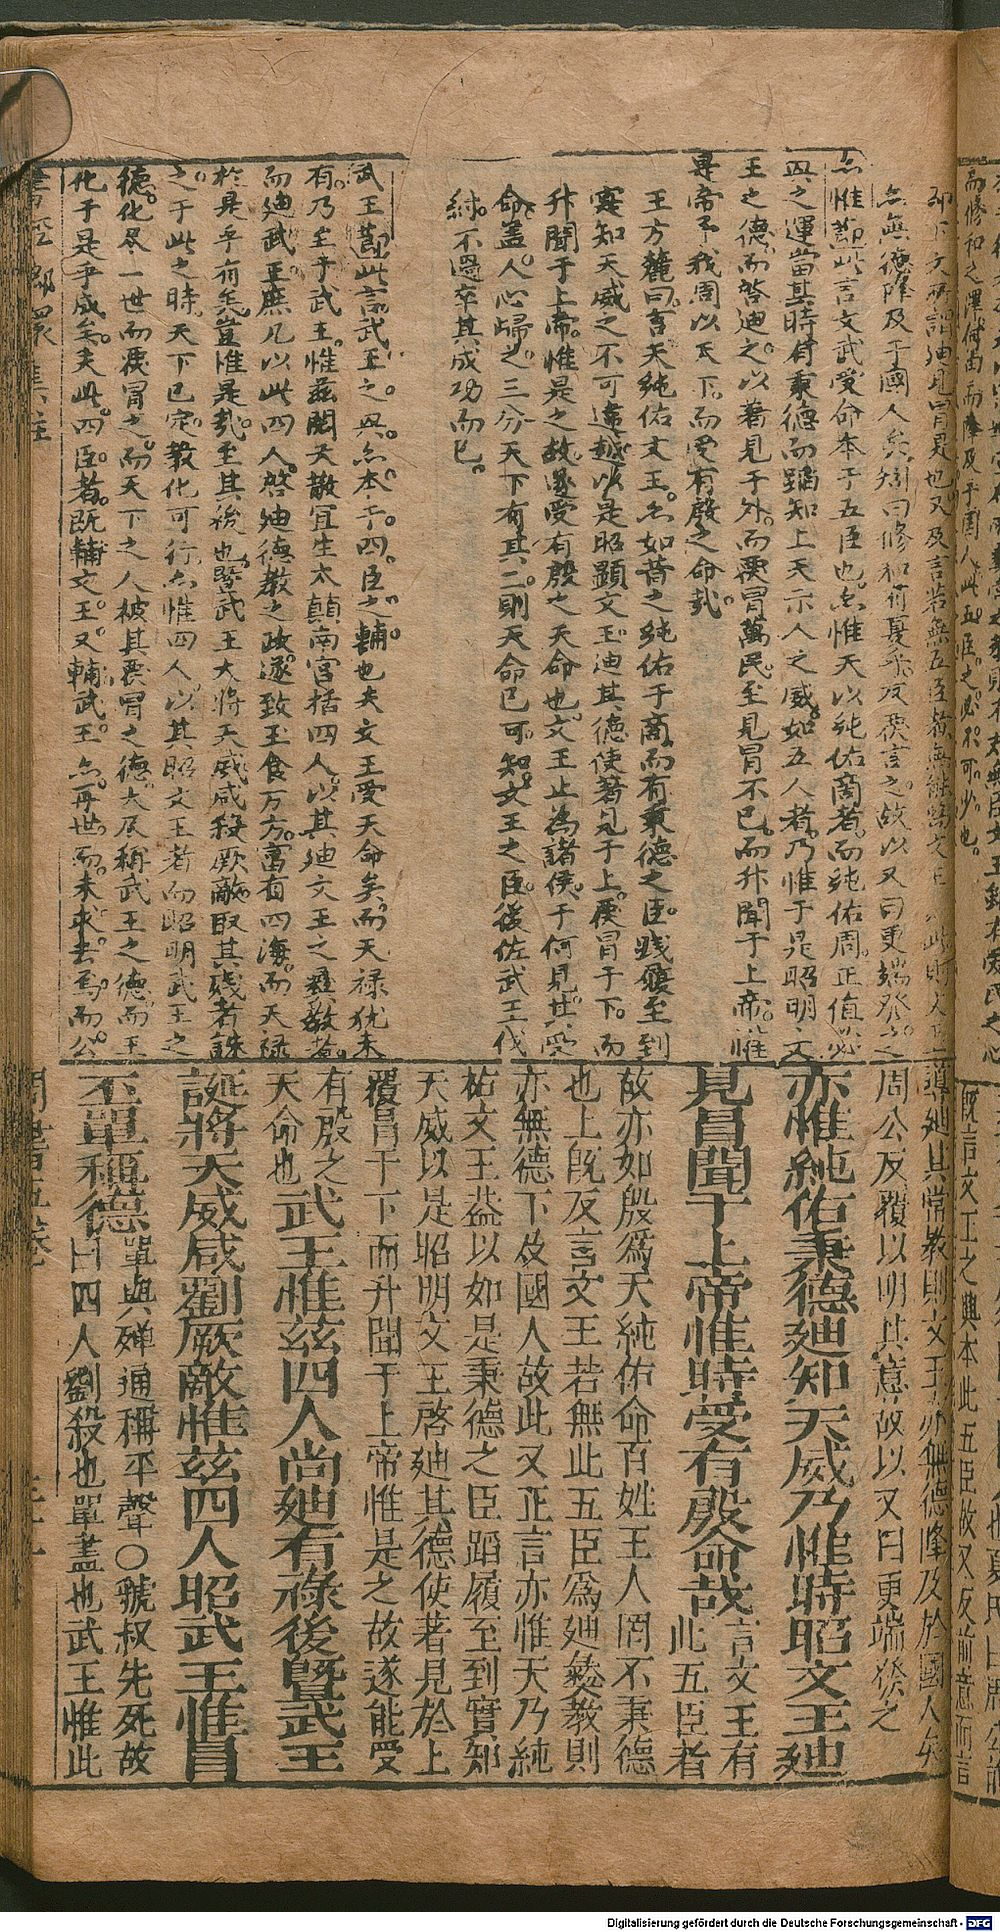 亦惟節此言文武受命本于五臣也亦惟天以純佑商者而純佑周正值必
興之運當其時有秉德而蹈知上天示人之威如五人者乃惟于是昭明文
王之德而啓迪之以著見于外而覆冒萬民至見冒不已而升聞于上帝惟
是帝予我周以天下而受有殷之命哉
王方麓曰言天純佑文王亦如昔之純佑于商而有秉德之臣踐履至到
實知天威之不可違越以是昭顯文王迪其德使著見于上覆冒于下而
升聞于上帝惟是之故遂受有殷之天命也文王止為諸侯于何見其受
命蓋人心歸之三分天下有其二則天命已可知文王之臣後佐武王伐
紂不過卒其成功而已
武王節此言武王之興亦本于四臣之輔也夫文王受天命矣而天祿猶未
有乃至于武王惟茲閎夭散宜生太顛南宮括四人以其迪文王之彝教者
而迪武王庶几以此四人啓迪德教之政遂致玉食万方富有四海而天祿
於是乎有矣豈惟是哉至其後也暨武王大將天威咸殺厥敵取其殘者誅
之于此之時天下已定教化可行亦惟四人以其昭文王者而昭明武王之
德化尽一世而覆冒之而天下之人被其覆冒之德大尽稱武王之德而王
化于是乎成矣夫此四臣者既輔文王又輔武王亦再世而未求去焉而公
導迪其常教則文王亦無德降及於國人矣
周公反覆以明其意故以又曰更端發之
亦惟純佑秉德迪知天威乃惟時昭文王迪
見冒聞于上帝惟時受有殷命哉言文王有
此五臣者
故亦如殷爲天純佑命百姓王人罔不秉德
也上既反言文王若無此五臣爲迪彝教則
亦無德下及國人故此又正言亦惟天乃純
祐文王蓋以如是秉德之臣蹈履至到實知
天威以是昭明文王啓迪其德使著見於上
覆冒于下而升聞于上帝惟是之故遂能受
有殷之
天命也武王惟茲四人尚迪有祿後暨武王
誕將天威咸劉厥敵惟茲四人昭武王惟冒
丕單稱德單與殫通稱平聲○虢叔先死故
曰四人劉殺也單盡也武王惟此
Digitalisierung gefördert durch die Deutsche Forschungsgemeinschaft - DFG